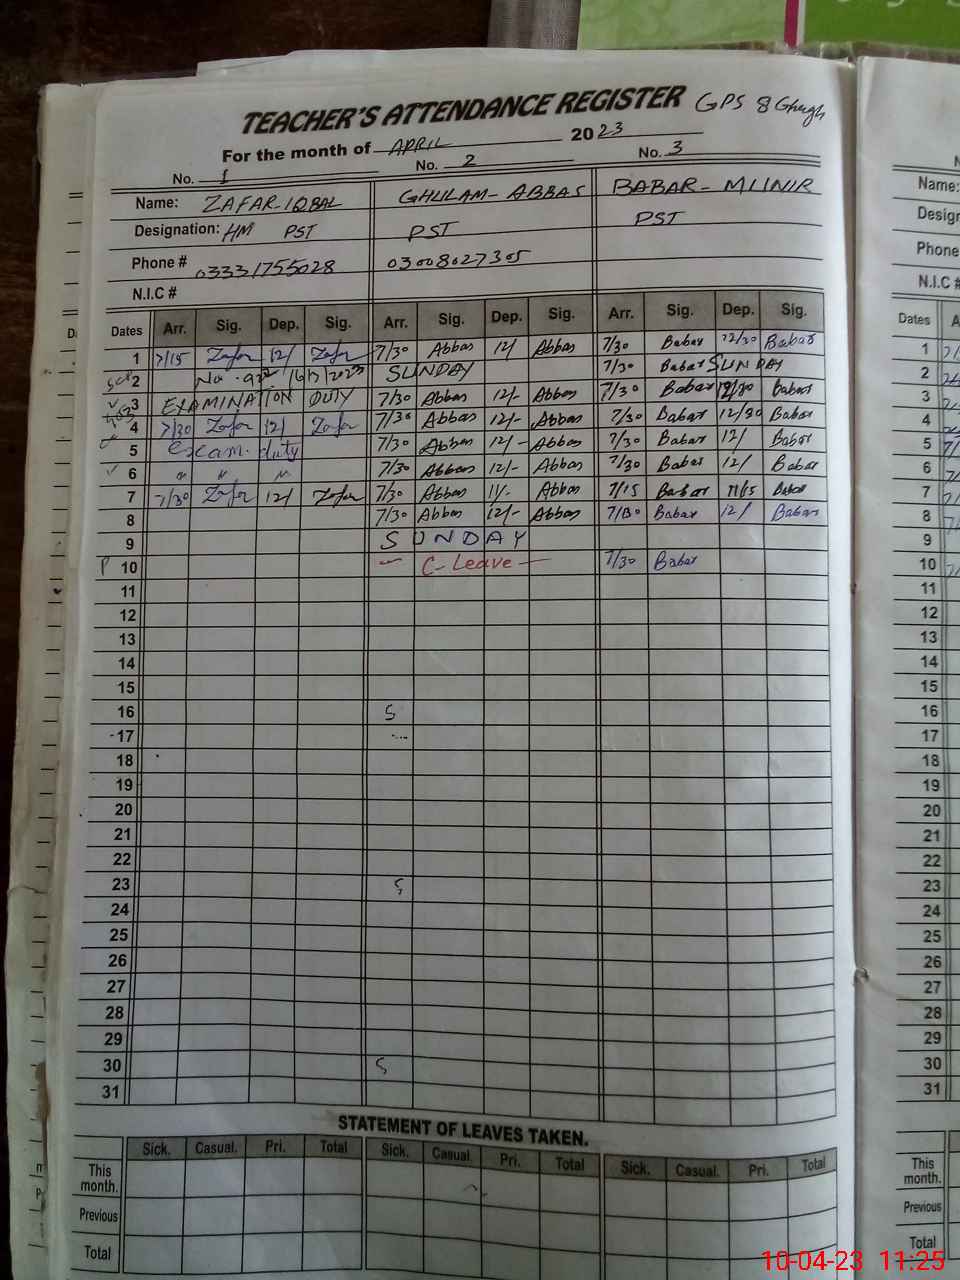 TEACHER'S ATTENDANCE REGISTER GPS 8 Ghagh
For the month of APRIL 2023
No. 1 No. 2 No. 3
Name: ZAFAR-IQBAL GHULAM-ABBAS BABAR-MUNIR
Designation: HM PST PST PST
Phone # 03331755028 03008027305
N.I.C #
Dates Arr. Sig. Dep. Sig. Arr. Sig. Dep. Sig. Arr. Sig. Dep. Sig.
1 7/15 Zafar 12/ Zafar 7/30 Abbas 12/ Abbas 7/30 Babar 12/30 Babar
2 No. 922 16/7/2023 SUNDAY 7/30 Babar SUNDAY
3 EXAMINATION DUTY 7/30 Abbas 12/- Abbas 7/30 Babar 12/30 Babar
4 7/30 Zafar 12/ Zafar 7/30 Abbas 12/- Abbas 7/30 Babar 12/30 Babar
5 exam. duty 7/30 Abbas 12/- Abbas 7/30 Babar 12/ Babar
6 " " " 7/30 Abbas 12/- Abbas 7/30 Babar 12/ Babar
7 7/30 Zafar 12/ Zafar 7/30 Abbas 11/- Abbas 7/15 Babar 11/15 Babar
8 7/30 Abbas 12/- Abbas 7/30 Babar 12/ Babar
9 SUNDAY
P 10 C-Leave 7/30 Babar
11
12
13
14
15
16 S
17
18
19
20
21
22
23 S
24
25
26
27
28
29
30 S
31
STATEMENT OF LEAVES TAKEN.
Sick. Casual. Pri. Total Sick. Casual. Pri. Total Sick. Casual. Pri. Total
This month.
Previous
Total
Name:
Phone #
N.I.C #
Dates
1
2
3
4
5
6
7
8
9
10
11
12
13
14
15
16
17
18
19
20
21
22
23
24
25
26
27
28
29
30
31
This month.
Previous
Total
10-04-23 11:25